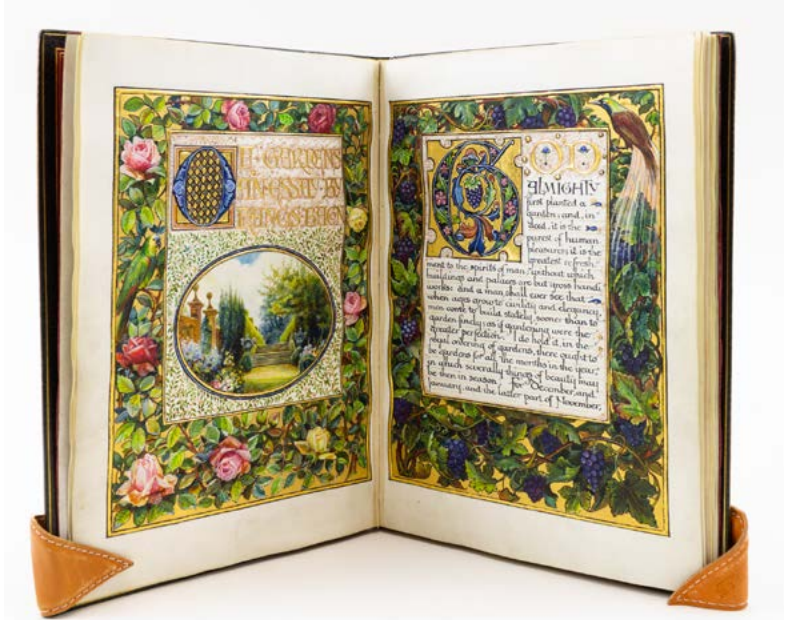 OF GARDENS
AN ESSAY BY
FRANCIS BACON
GOD
ALMIGHTY
first planted a
garden; and, in-
deed, it is the
purest of human
pleasures; it is the
greatest refresh-
ment to the spirits of man; without which
buildings and palaces are but gross handi-
works: and a man shall ever see that
when ages grow to civility and elegancy,
men come to build stately, sooner than to
garden finely; as if gardening were the
greater perfection. I do hold it, in the
royal ordering of gardens, there ought to
be gardens for all the months in the year;
in which severally things of beauty may
be then in season. for December, and
January, and the latter part of November,